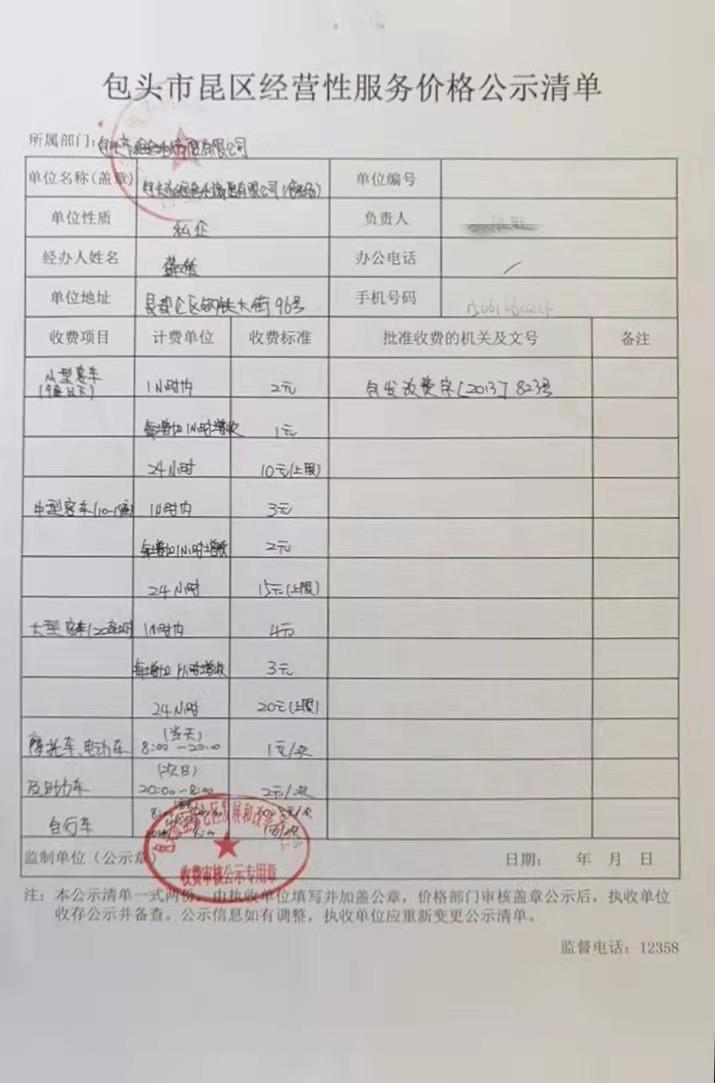 包头市昆区经营性服务价格公示清单
所属部门: 包头市 有限公司
单位名称(盖章) 包头市 有限公司 单位编号
单位性质 私企 负责人
经办人姓名 办公电话 /
单位地址 昆都仑区钢铁大街96号 手机号码
收费项目 计费单位 收费标准 批准收费的机关及文号 备注
小型客车
(9座以下) 1小时内 2元 包发改费字[2013]823号
每增加1小时增收 1元
24小时 10元(上限)
中型客车(10-19座) 1小时内 3元
每增加1小时增收 2元
24小时 15元(上限)
大型客车(20座以上) 1小时内 4元
每增加1小时增收 3元
24小时 20元(上限)
摩托车、电动车 (当天)
8:00-20:00 1元/次
及助力车 (次日)
20:00-8:00 2元/次
自行车
监制单位(公示章) 日期: 年 月 日
收费审核公示专用章
注: 本公示清单一式两份, 由执收单位填写并加盖公章, 价格部门审核盖章公示后, 执收单位
收存公示并备查。公示信息如有调整, 执收单位应重新变更公示清单。
监督电话: 12358